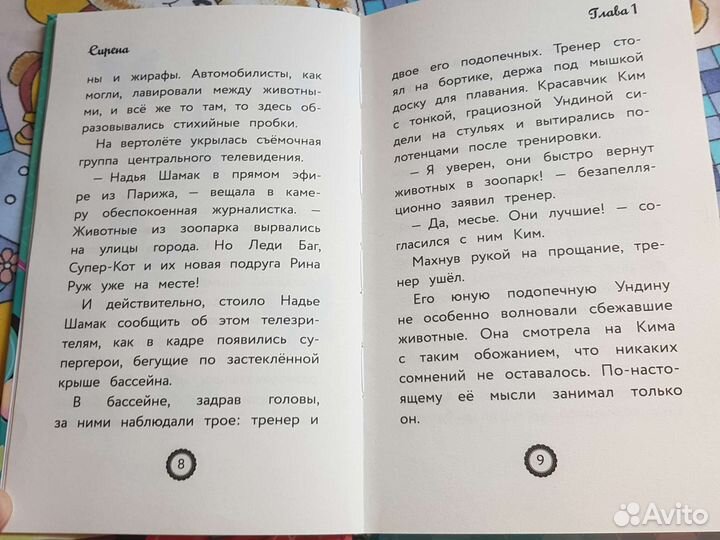 Сирена
ны и жирафы. Автомобилисты, как
могли, лавировали между животны-
ми, и всё же то там, то здесь об-
разовывались стихийные пробки.
На вертолёте укрылась съёмочная
группа центрального телевидения.
— Надья Шамак в прямом эфи-
ре из Парижа, — вещала в каме-
ру обеспокоенная журналистка. —
Животные из зоопарка вырвались
на улицы города. Но Леди Баг,
Супер-Кот и их новая подруга Рина
Руж уже на месте!
И действительно, стоило Надье
Шамак сообщить об этом телезри-
телям, как в кадре появились су-
пергерои, бегущие по застеклённой
крыше бассейна.
В бассейне, задрав головы,
за ними наблюдали трое: тренер и
8
Глава 1
двое его подопечных. Тренер сто-
ял на бортике, держа под мышкой
доску для плавания. Красавчик Ким
с тонкой, грациозной Ундиной си-
дели на стульях и вытирались по-
лотенцами после тренировки.
— Я уверен, они быстро вернут
животных в зоопарк! — безапелля-
ционно заявил тренер.
— Да, месье. Они лучшие! — со-
гласился с ним Ким.
Махнув рукой на прощание, тре-
нер ушёл.
Его юную подопечную Ундину
не особенно волновали сбежавшие
животные. Она смотрела на Кима
с таким обожанием, что никаких
сомнений не оставалось. По-насто-
ящему её мысли занимал только
он.
9
Avito